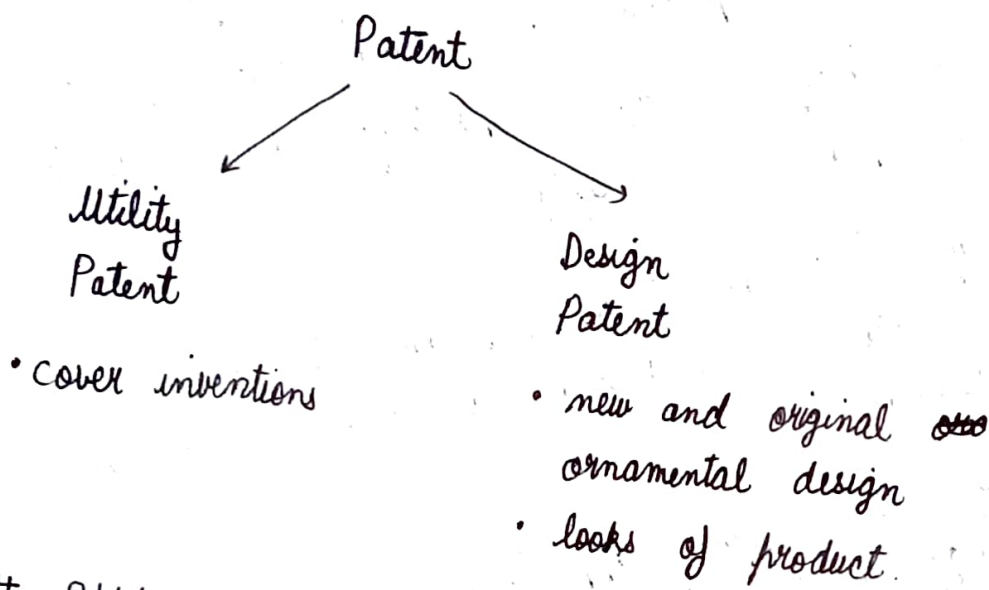 Patent
Utility
Patent
• cover inventions
Design
Patent
• new and original
ornamental design
• looks of product.